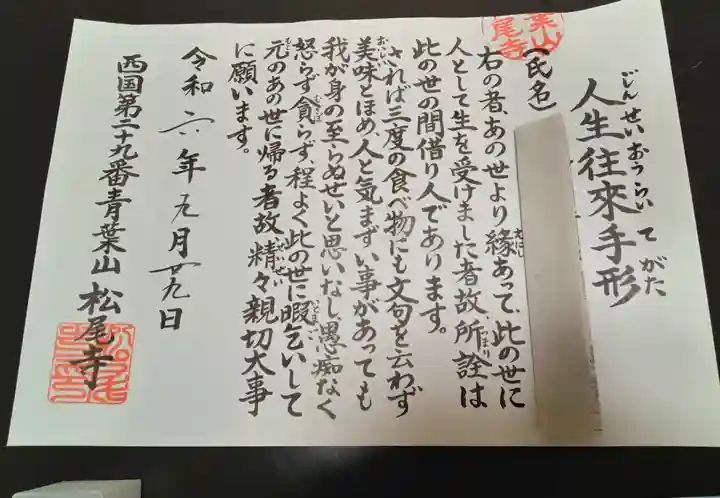 人生往來手形
じんせいおうらいてがた
葉山
尾寺
(氏名)
右の者、あの世より縁あって、此の世に
えにし
人として生を受けました者故、所詮は
つまり
此の世の間借り人であります。
されば三度の食べ物にも文句を云わず
美味とほめ、人と気まずい事があっても
おいしい
我が身の至らぬせいと思いなし、愚痴なく
怒らず貪らず、程よく此の世に暇乞いして
むさぼ
いとま
元のあの世に帰る者故、精々親切大事
もと
せいぜい
に願います。
令和六年元月廿九日
西国第二十九番青葉山松尾寺